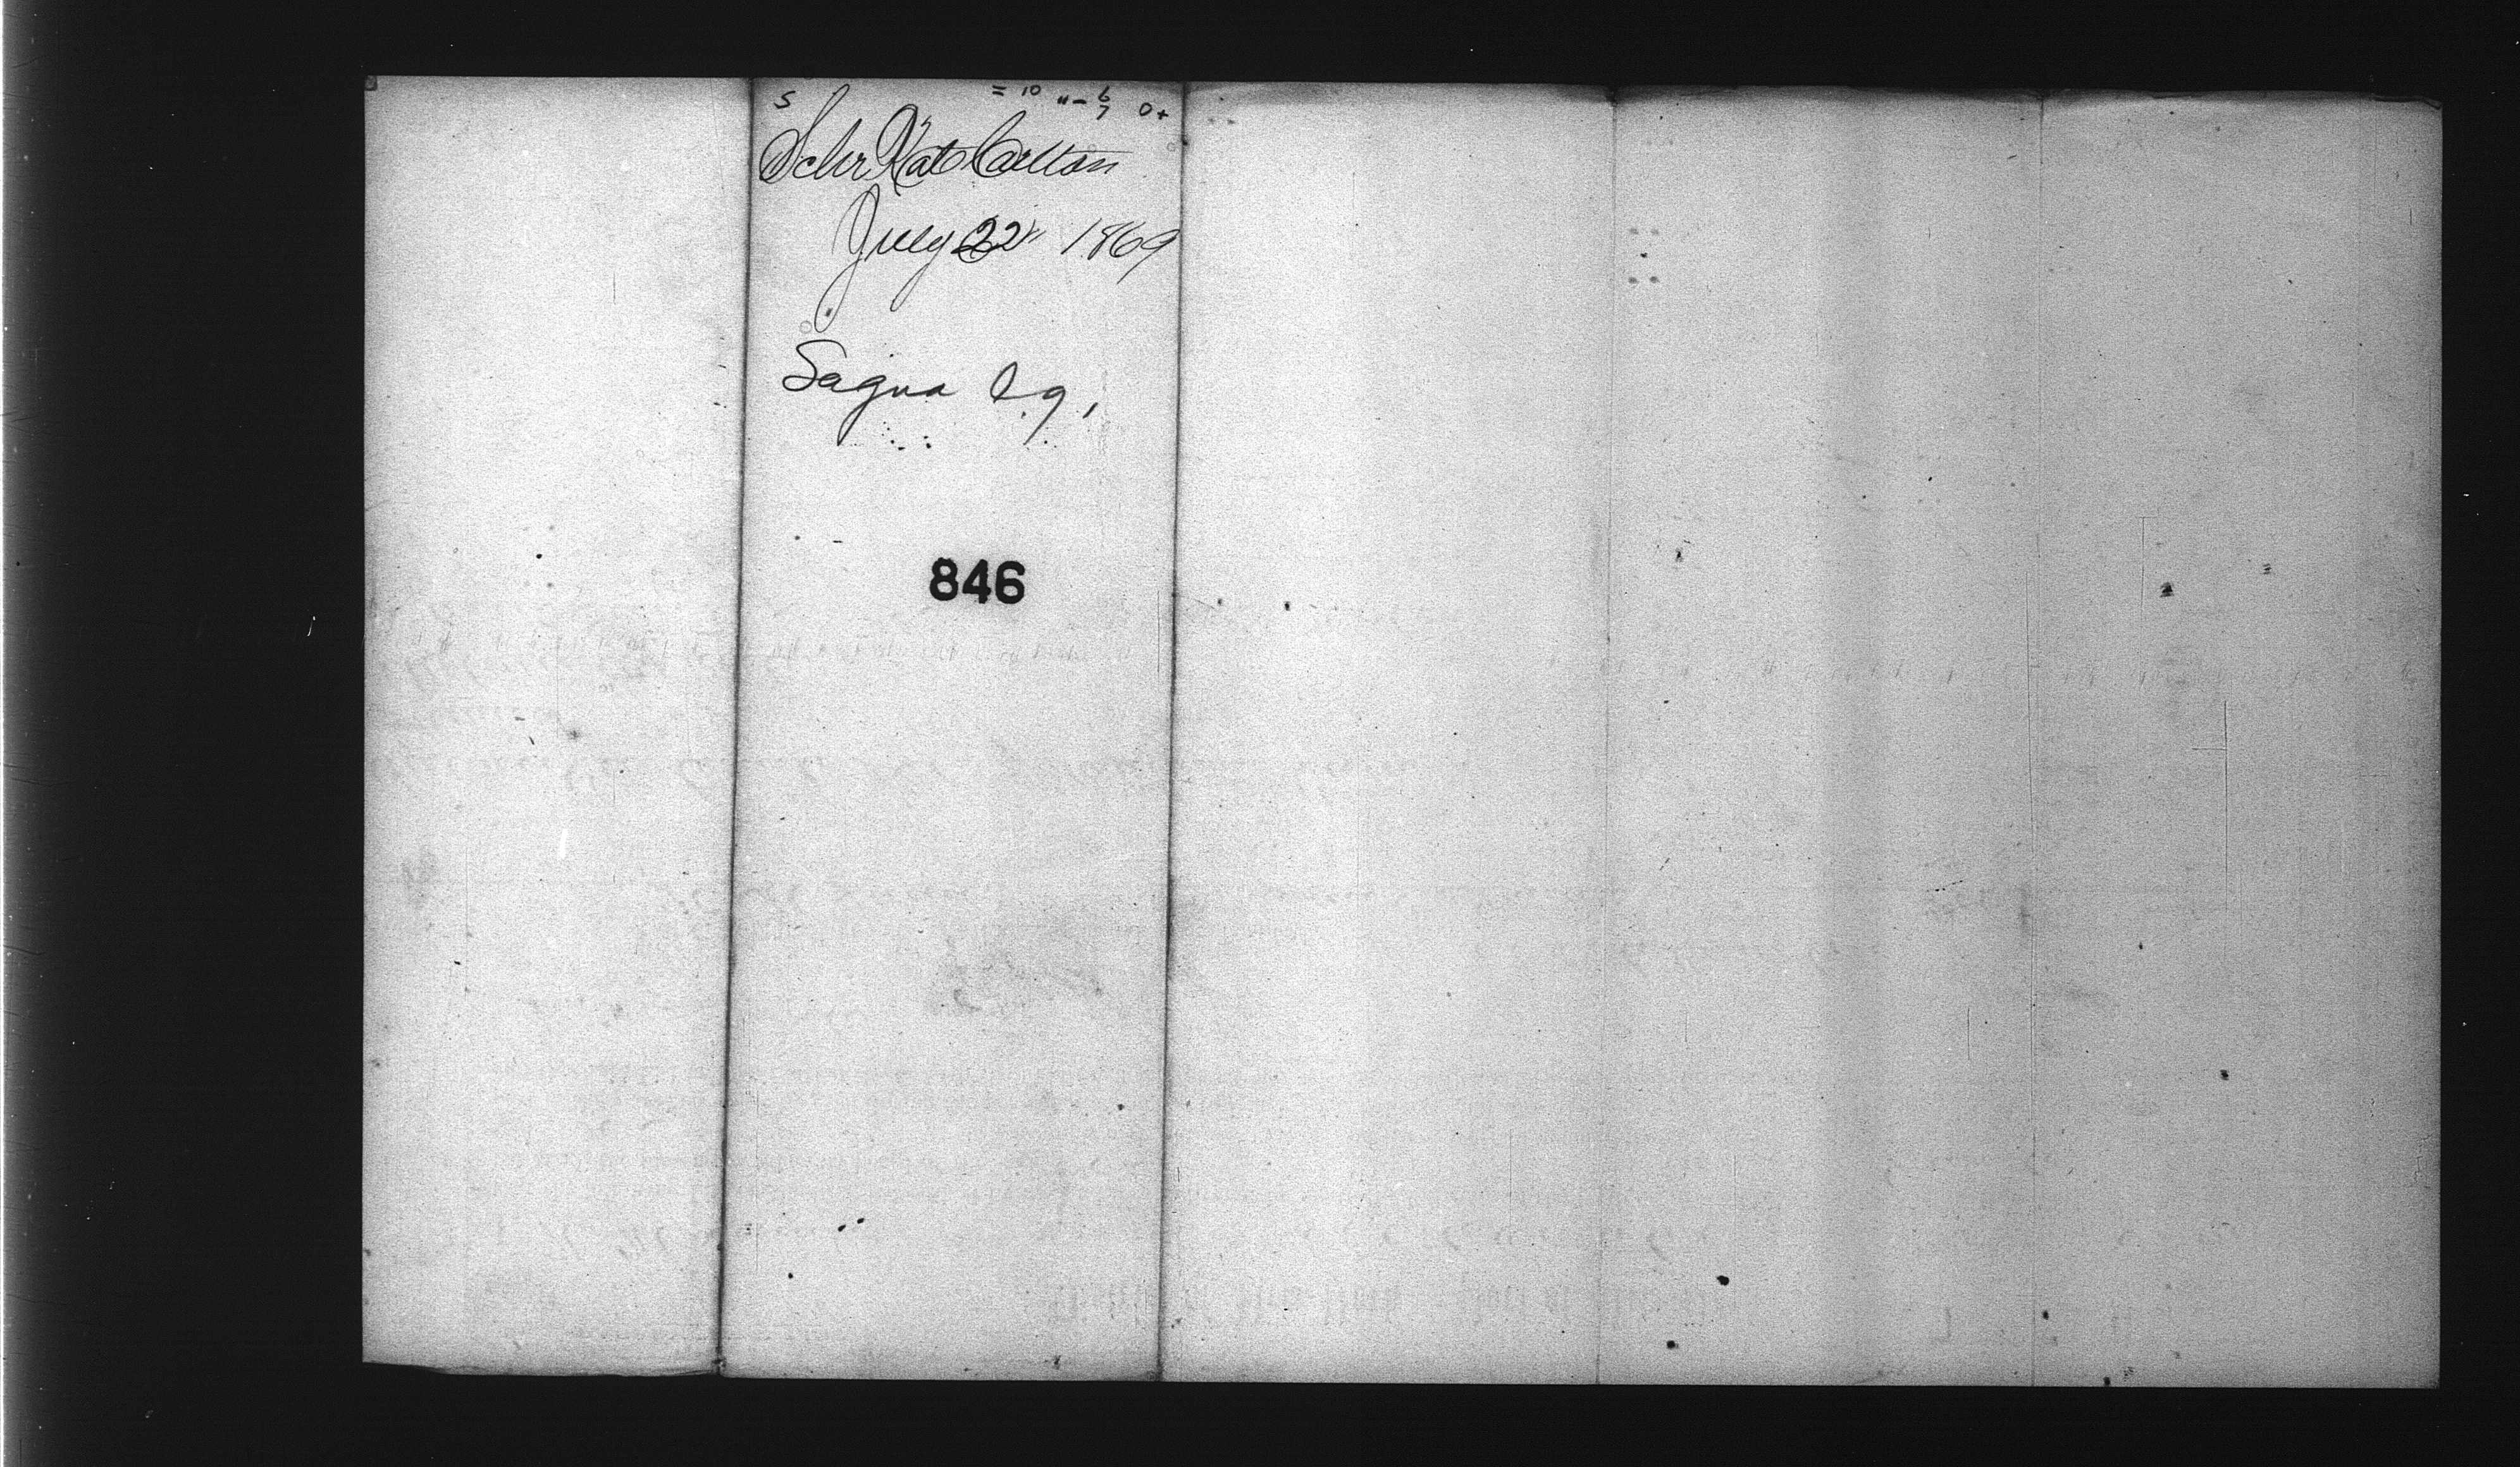 S = 10 "- 6/7 0+
Schr Kate Carlton
July 22" 1869
Sagua
846